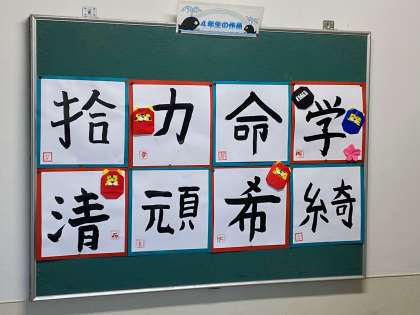 4年生の作品
拾力命学
清頑希綺